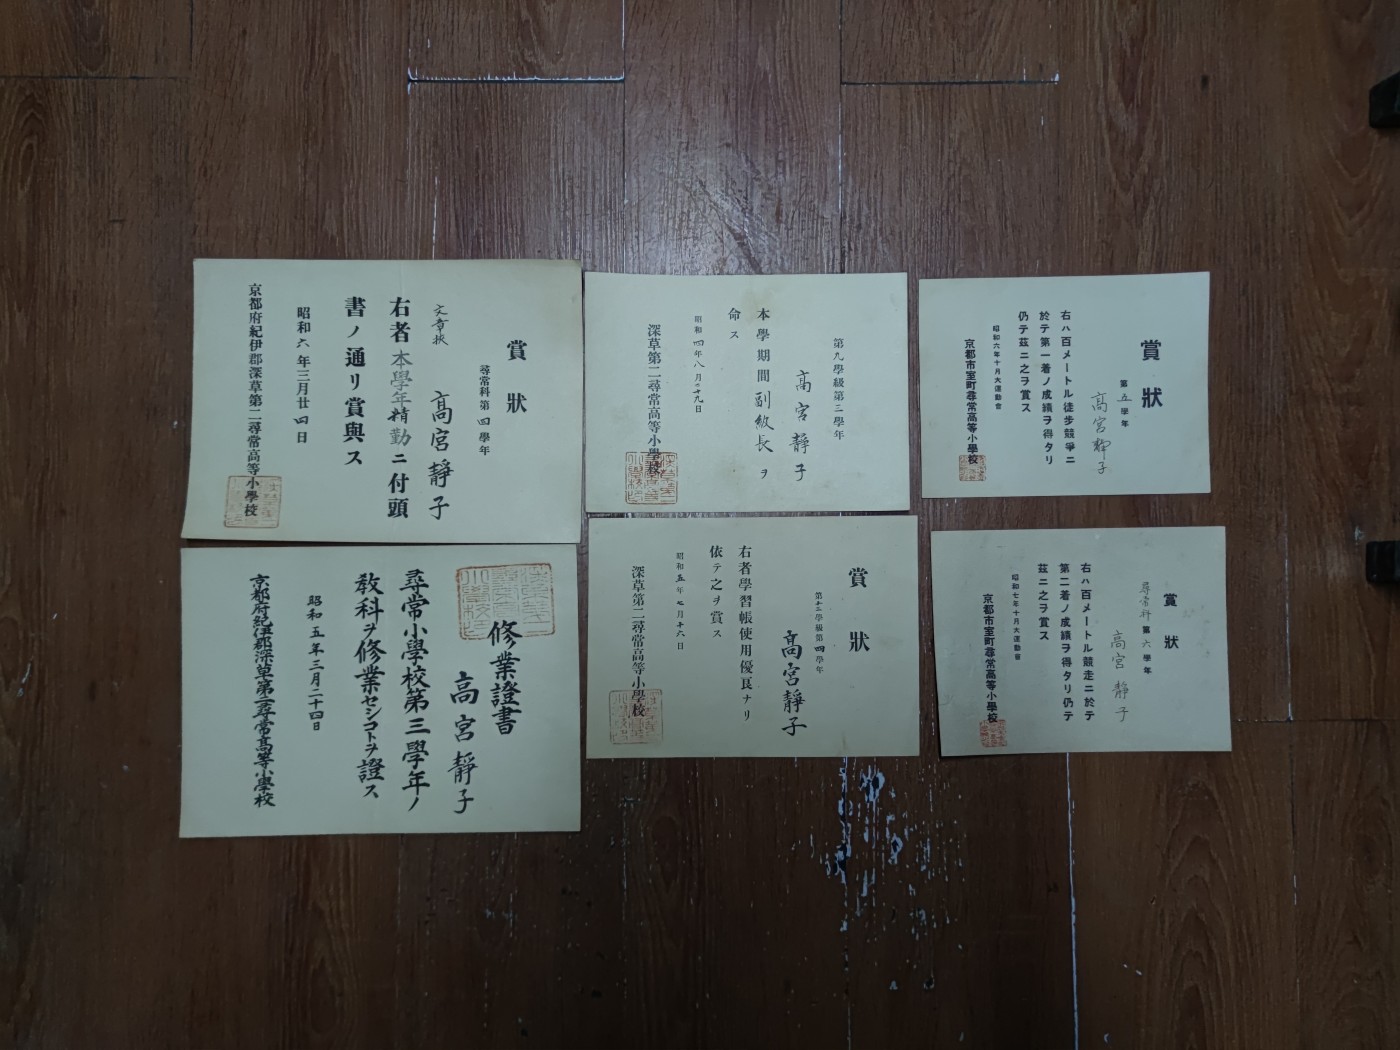 賞狀
尋常科第四學年
文章挾
髙宮靜子
右者本學年精勤ニ付頭
書ノ通リ賞與ス
昭和六年三月廿四日
京都府紀伊郡深草第二尋常高等小學校
第九學級第三學年
髙宮靜子
本學期間副級長ヲ
命ス
昭和四年八月二九日
深草第二尋常高等小學校
賞狀
第五學年
髙宮靜子
右ハ百メートル徒步競爭ニ
於テ第一着ノ成績ヲ得タリ
仍テ茲ニ之ヲ賞ス
昭和六年十月大運動會
京都市室町尋常高等小學校
修業證書
髙宮靜子
尋常小學校第三學年ノ
敎科ヲ修業セシコトヲ證ス
昭和五年三月二十四日
京都府紀伊郡深草第二尋常高等小學校
賞狀
第十二學級第四學年
髙宮靜子
右者學習帳使用優良ナリ
依テ之ヲ賞ス
昭和五年七月十六日
深草第二尋常高等小學校
賞狀
尋常科第六學年
髙宮靜子
右ハ百メートル競走ニ於テ
第二着ノ成績ヲ得タリ仍テ
茲ニ之ヲ賞ス
昭和七年十月大運動會
京都市室町尋常高等小學校